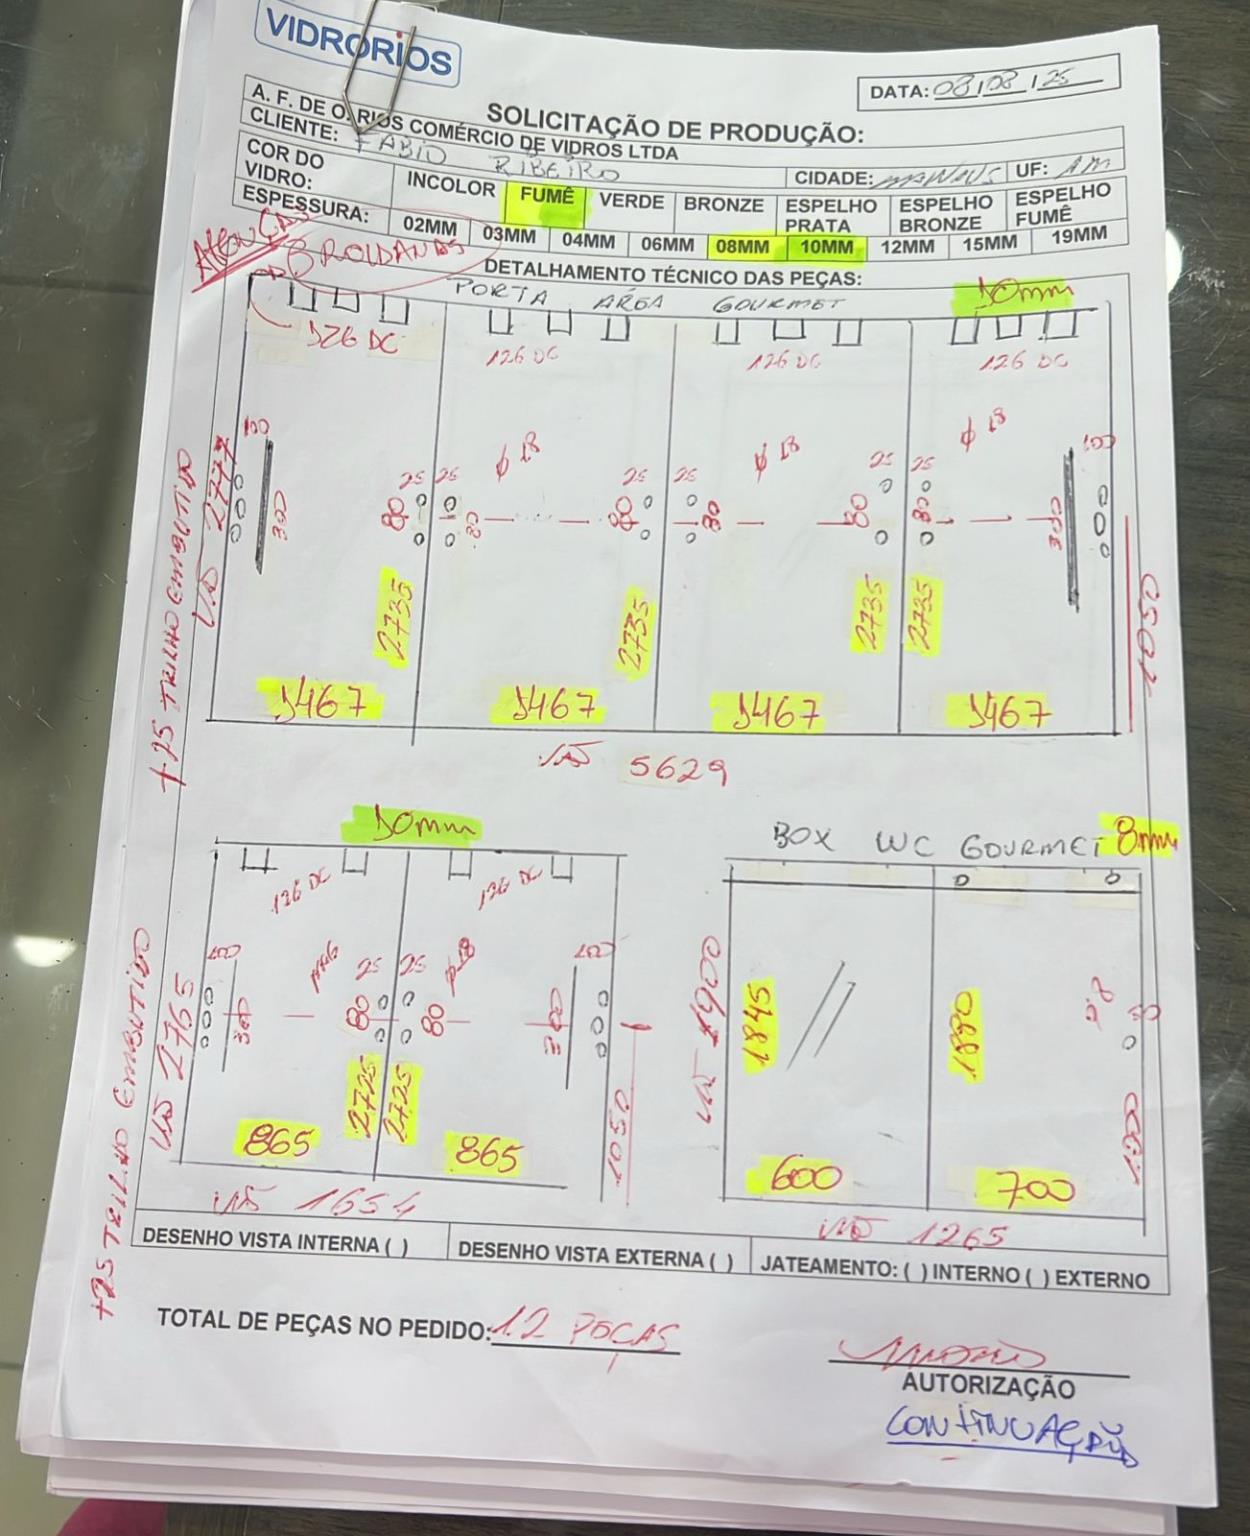 VIDRORIOS
DATA: 08/08/25
SOLICITAÇÃO DE PRODUÇÃO:
A. F. DE O. RIOS COMÉRCIO DE VIDROS LTDA
CLIENTE: FABIO RIBEIRO
CIDADE: MANAUS UF: AM
COR DO VIDRO: INCOLOR FUMÊ VERDE BRONZE ESPELHO PRATA ESPELHO BRONZE ESPELHO FUMÊ
ESPESSURA: 02MM 03MM 04MM 06MM 08MM 10MM 12MM 15MM 19MM
ATENÇÃO 3 ROLDANAS
DETALHAMENTO TÉCNICO DAS PEÇAS:
PORTA ÁREA GOURMET 10mm
126 DC 126 DC 126 DC 126 DC
φ 18 φ 18 φ 18
100 25 25 25 25 25 25 100
300 80 80 80 80 80 80 300
VÃO 2777
+25 TRILHO EMBUTIDO
2735 2735 2735 2735
1050
1467 1467 1467 1467
VÃO 5629
10mm
126 DC 126 DC
100 25 25 φ18 100
300 80 80 300
VÃO 2765
+25 TRILHO EMBUTIDO
2725 2725
1050
865 865
VÃO 1654
BOX WC GOURMET 8mm
VÃO 1900
1845 1880
600 700
VÃO 1265
DESENHO VISTA INTERNA ( ) DESENHO VISTA EXTERNA ( ) JATEAMENTO: ( ) INTERNO ( ) EXTERNO
TOTAL DE PEÇAS NO PEDIDO: 12 PEÇAS
AUTORIZAÇÃO
CONTINUAÇÃO